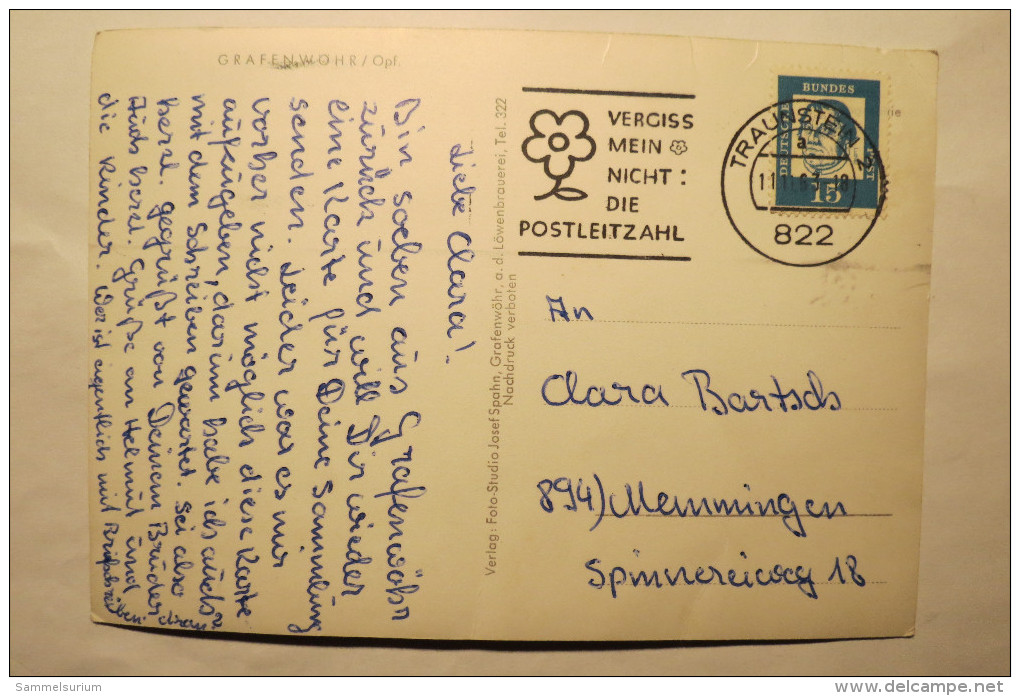 GRAFENWÖHR/Opf.
Liebe Clara!
Bin soeben aus Grafenwöhr
zurück und will Dir wieder
eine Karte für Deine Sammlung
senden. Leider war es mir
vorher nicht möglich diese Karte
aufzugeben, darum habe ich auch
mit dem Schreiben gewartet. Sei also
herzl. gegrüßt von Deinem Bruder
Auch herzl. Grüße an Helmut und
die Kinder. Wer ist eigentlich mit Briefschreiben
dran?
Verlag: Foto-Studio Josef Spahn, Grafenwöhr, a. d. Löwenbrauerei, Tel. 322
Nachdruck verboten
VERGISS
MEIN
NICHT:
DIE
POSTLEITZAHL
TRAUNSTEIN 2
a
822
DEUTSCHE
BUNDES
POST
15
An
Clara Bartsch
894) Memmingen
Spinnereiweg 18
Sammelsurium
www.delcampe.net